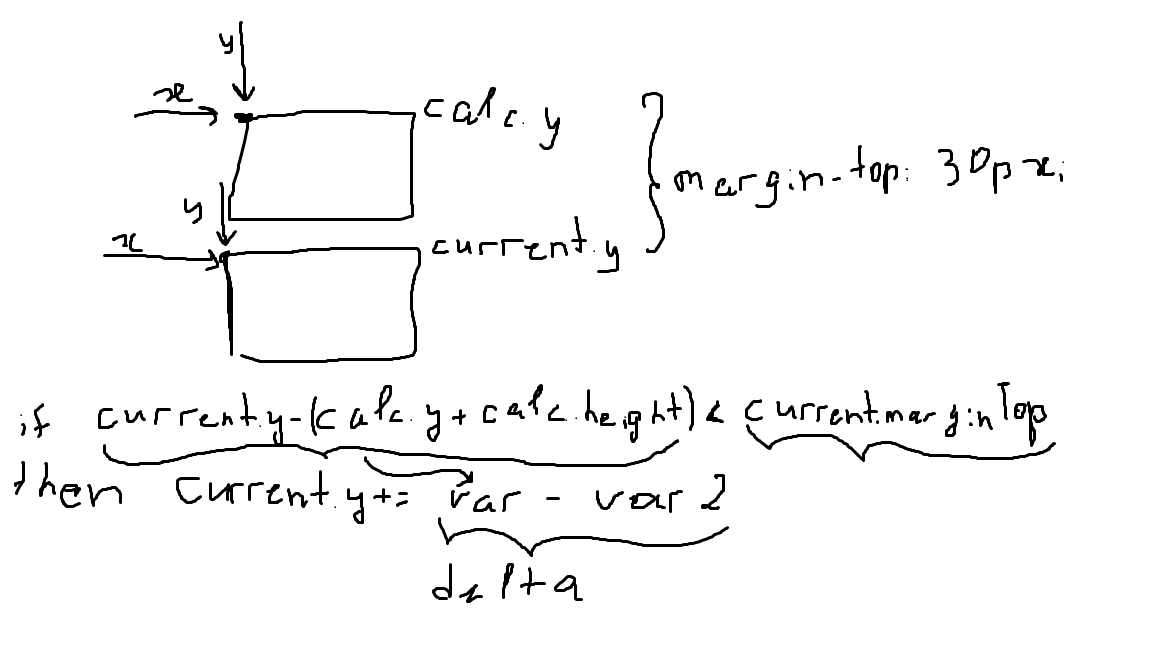 y
x
calc.y
margin-top: 30px;
y
x
current.y
if current.y-(calc.y+calc.height)< current.marginTop
then current.y+= var - var2
delta